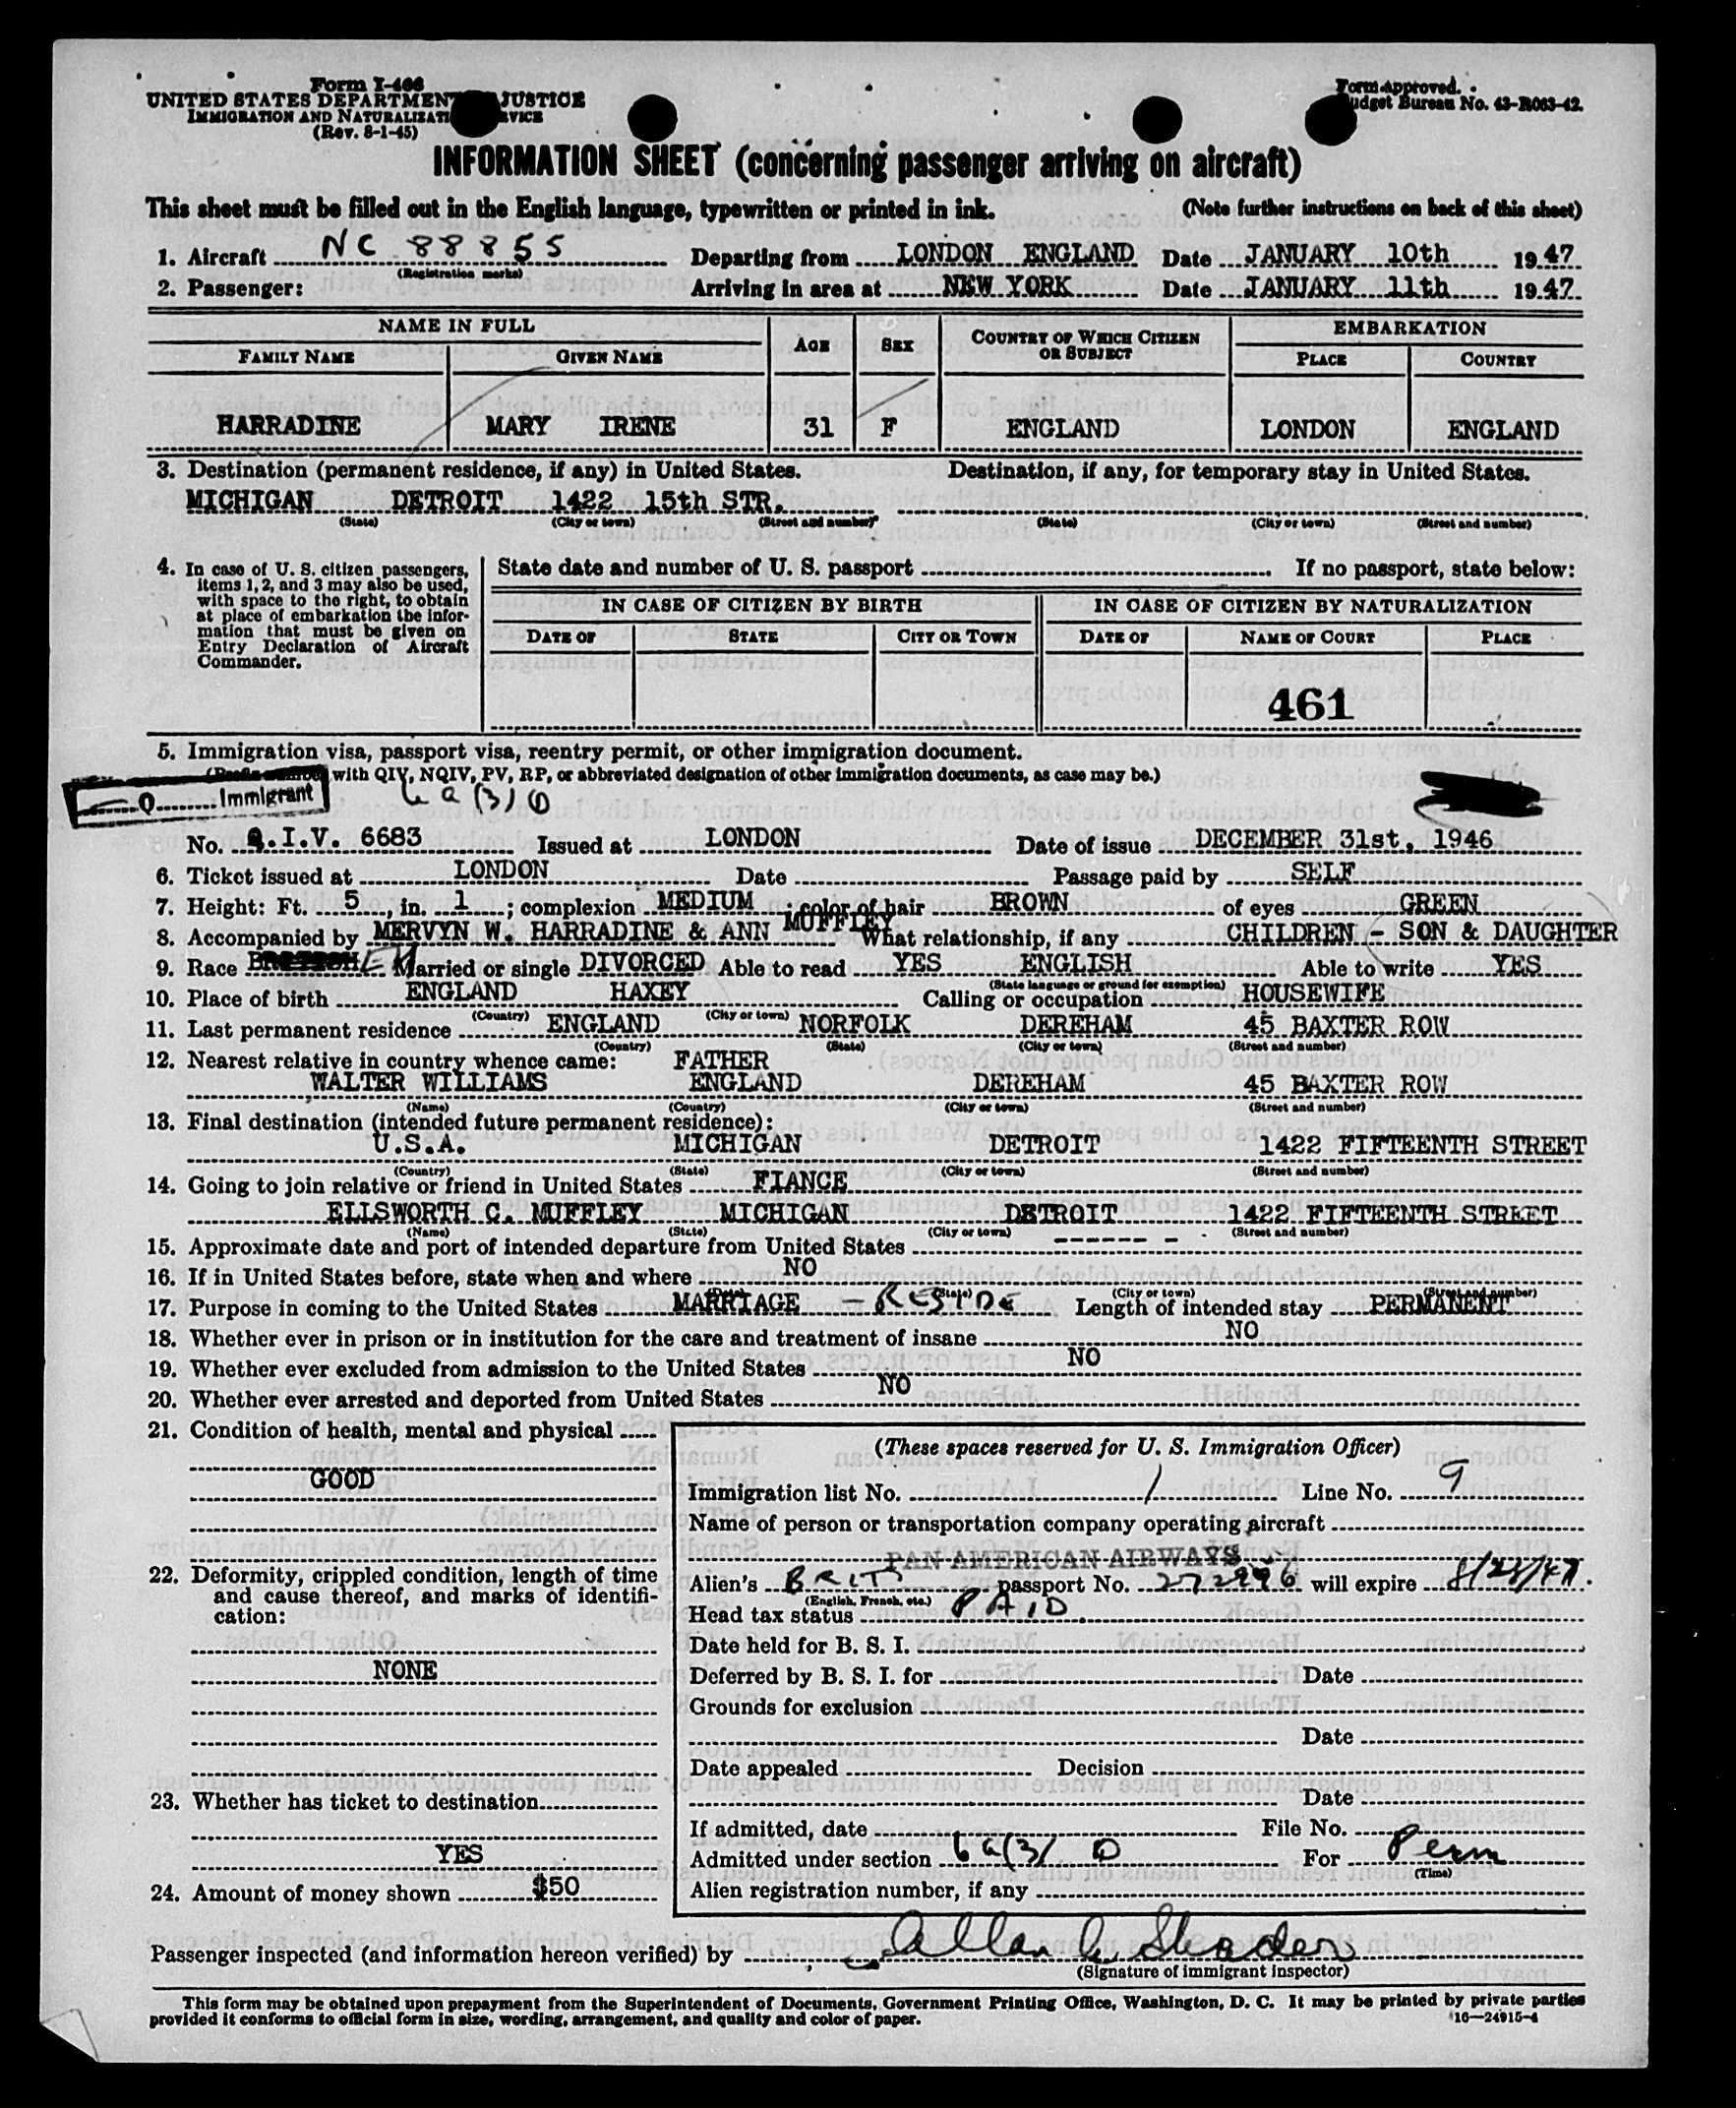 Form I-466
UNITED STATES DEPARTMENT JUSTICE
IMMIGRATION AND NATURALIZATI VICE
(Rev. 8-1-45)
Form approved.
Budget Bureau No. 43-R063-42.
INFORMATION SHEET (concerning passenger arriving on aircraft)
This sheet must be filled out in the English language, typewritten or printed in ink. (Note further instructions on back of this sheet)
1. Aircraft NC 88855 Departing from LONDON ENGLAND Date JANUARY 10th 1947
(Registration marks)
2. Passenger: Arriving in area at NEW YORK Date JANUARY 11th 1947
NAME IN FULL AGE SEX COUNTRY OF WHICH CITIZEN OR SUBJECT EMBARKATION
FAMILY NAME GIVEN NAME PLACE COUNTRY
HARRADINE MARY IRENE 31 F ENGLAND LONDON ENGLAND
3. Destination (permanent residence, if any) in United States. Destination, if any, for temporary stay in United States.
MICHIGAN DETROIT 1422 15th STR.
(State) (City or town) (Street and number) (State) (City or town) (Street and number)
4. In case of U. S. citizen passengers, items 1, 2, and 3 may also be used, with space to the right, to obtain at place of embarkation the information that must be given on Entry Declaration of Aircraft Commander.
State date and number of U. S. passport If no passport, state below:
IN CASE OF CITIZEN BY BIRTH IN CASE OF CITIZEN BY NATURALIZATION
DATE OF STATE CITY OR TOWN DATE OF NAME OF COURT PLACE
461
5. Immigration visa, passport visa, reentry permit, or other immigration document.
(Prefix number with QIV, NQIV, PV, RP, or abbreviated designation of other immigration documents, as case may be.)
Q Immigrant 6a(3) Q
No. Q.I.V. 6683 Issued at LONDON Date of issue DECEMBER 31st, 1946
6. Ticket issued at LONDON Date Passage paid by SELF
7. Height: Ft. 5, in. 1; complexion MEDIUM; color of hair BROWN of eyes GREEN
8. Accompanied by MERVYN W. HARRADINE & ANN MUFFLEY What relationship, if any CHILDREN - SON & DAUGHTER
9. Race EN Married or single DIVORCED Able to read YES ENGLISH Able to write YES
(State language or ground for exemption)
10. Place of birth ENGLAND HAXEY Calling or occupation HOUSEWIFE
(Country) (City or town)
11. Last permanent residence ENGLAND NORFOLK DEREHAM 45 BAXTER ROW
(Country) (State) (City or town) (Street and number)
12. Nearest relative in country whence came: FATHER
WALTER WILLIAMS ENGLAND DEREHAM 45 BAXTER ROW
(Name) (Country) (City or town) (Street and number)
13. Final destination (intended future permanent residence):
U.S.A. MICHIGAN DETROIT 1422 FIFTEENTH STREET
(Country) (State) (City or town) (Street and number)
14. Going to join relative or friend in United States FIANCE
ELLSWORTH C. MUFFLEY MICHIGAN DETROIT 1422 FIFTEENTH STREET
(Name) (State) (City or town) (Street and number)
15. Approximate date and port of intended departure from United States - - - - - - -
16. If in United States before, state when and where NO
(Date) (State) (City or town) (Street and number)
17. Purpose in coming to the United States MARRIAGE - RESIDE Length of intended stay PERMANENT
18. Whether ever in prison or in institution for the care and treatment of insane NO
19. Whether ever excluded from admission to the United States NO
20. Whether ever arrested and deported from United States NO
21. Condition of health, mental and physical
GOOD
22. Deformity, crippled condition, length of time and cause thereof, and marks of identification:
NONE
23. Whether has ticket to destination
YES
24. Amount of money shown $50
(These spaces reserved for U. S. Immigration Officer)
Immigration list No. 1 Line No. 9
Name of person or transportation company operating aircraft
PAN AMERICAN AIRWAYS
Alien's BRIT passport No. 272296 will expire
(English, French, etc.)
Head tax status PAID
Date held for B. S. I.
Deferred by B. S. I. for Date
Grounds for exclusion
Date
Date appealed Decision
Date
If admitted, date File No.
Admitted under section 6a(3) Q For Perm
(Time)
Alien registration number, if any
Passenger inspected (and information hereon verified) by Allan
(Signature of immigrant inspector)
This form may be obtained upon prepayment from the Superintendent of Documents, Government Printing Office, Washington, D. C. It may be printed by private parties
provided it conforms to official form in size, wording, arrangement, and quality and color of paper. 16—24915-4